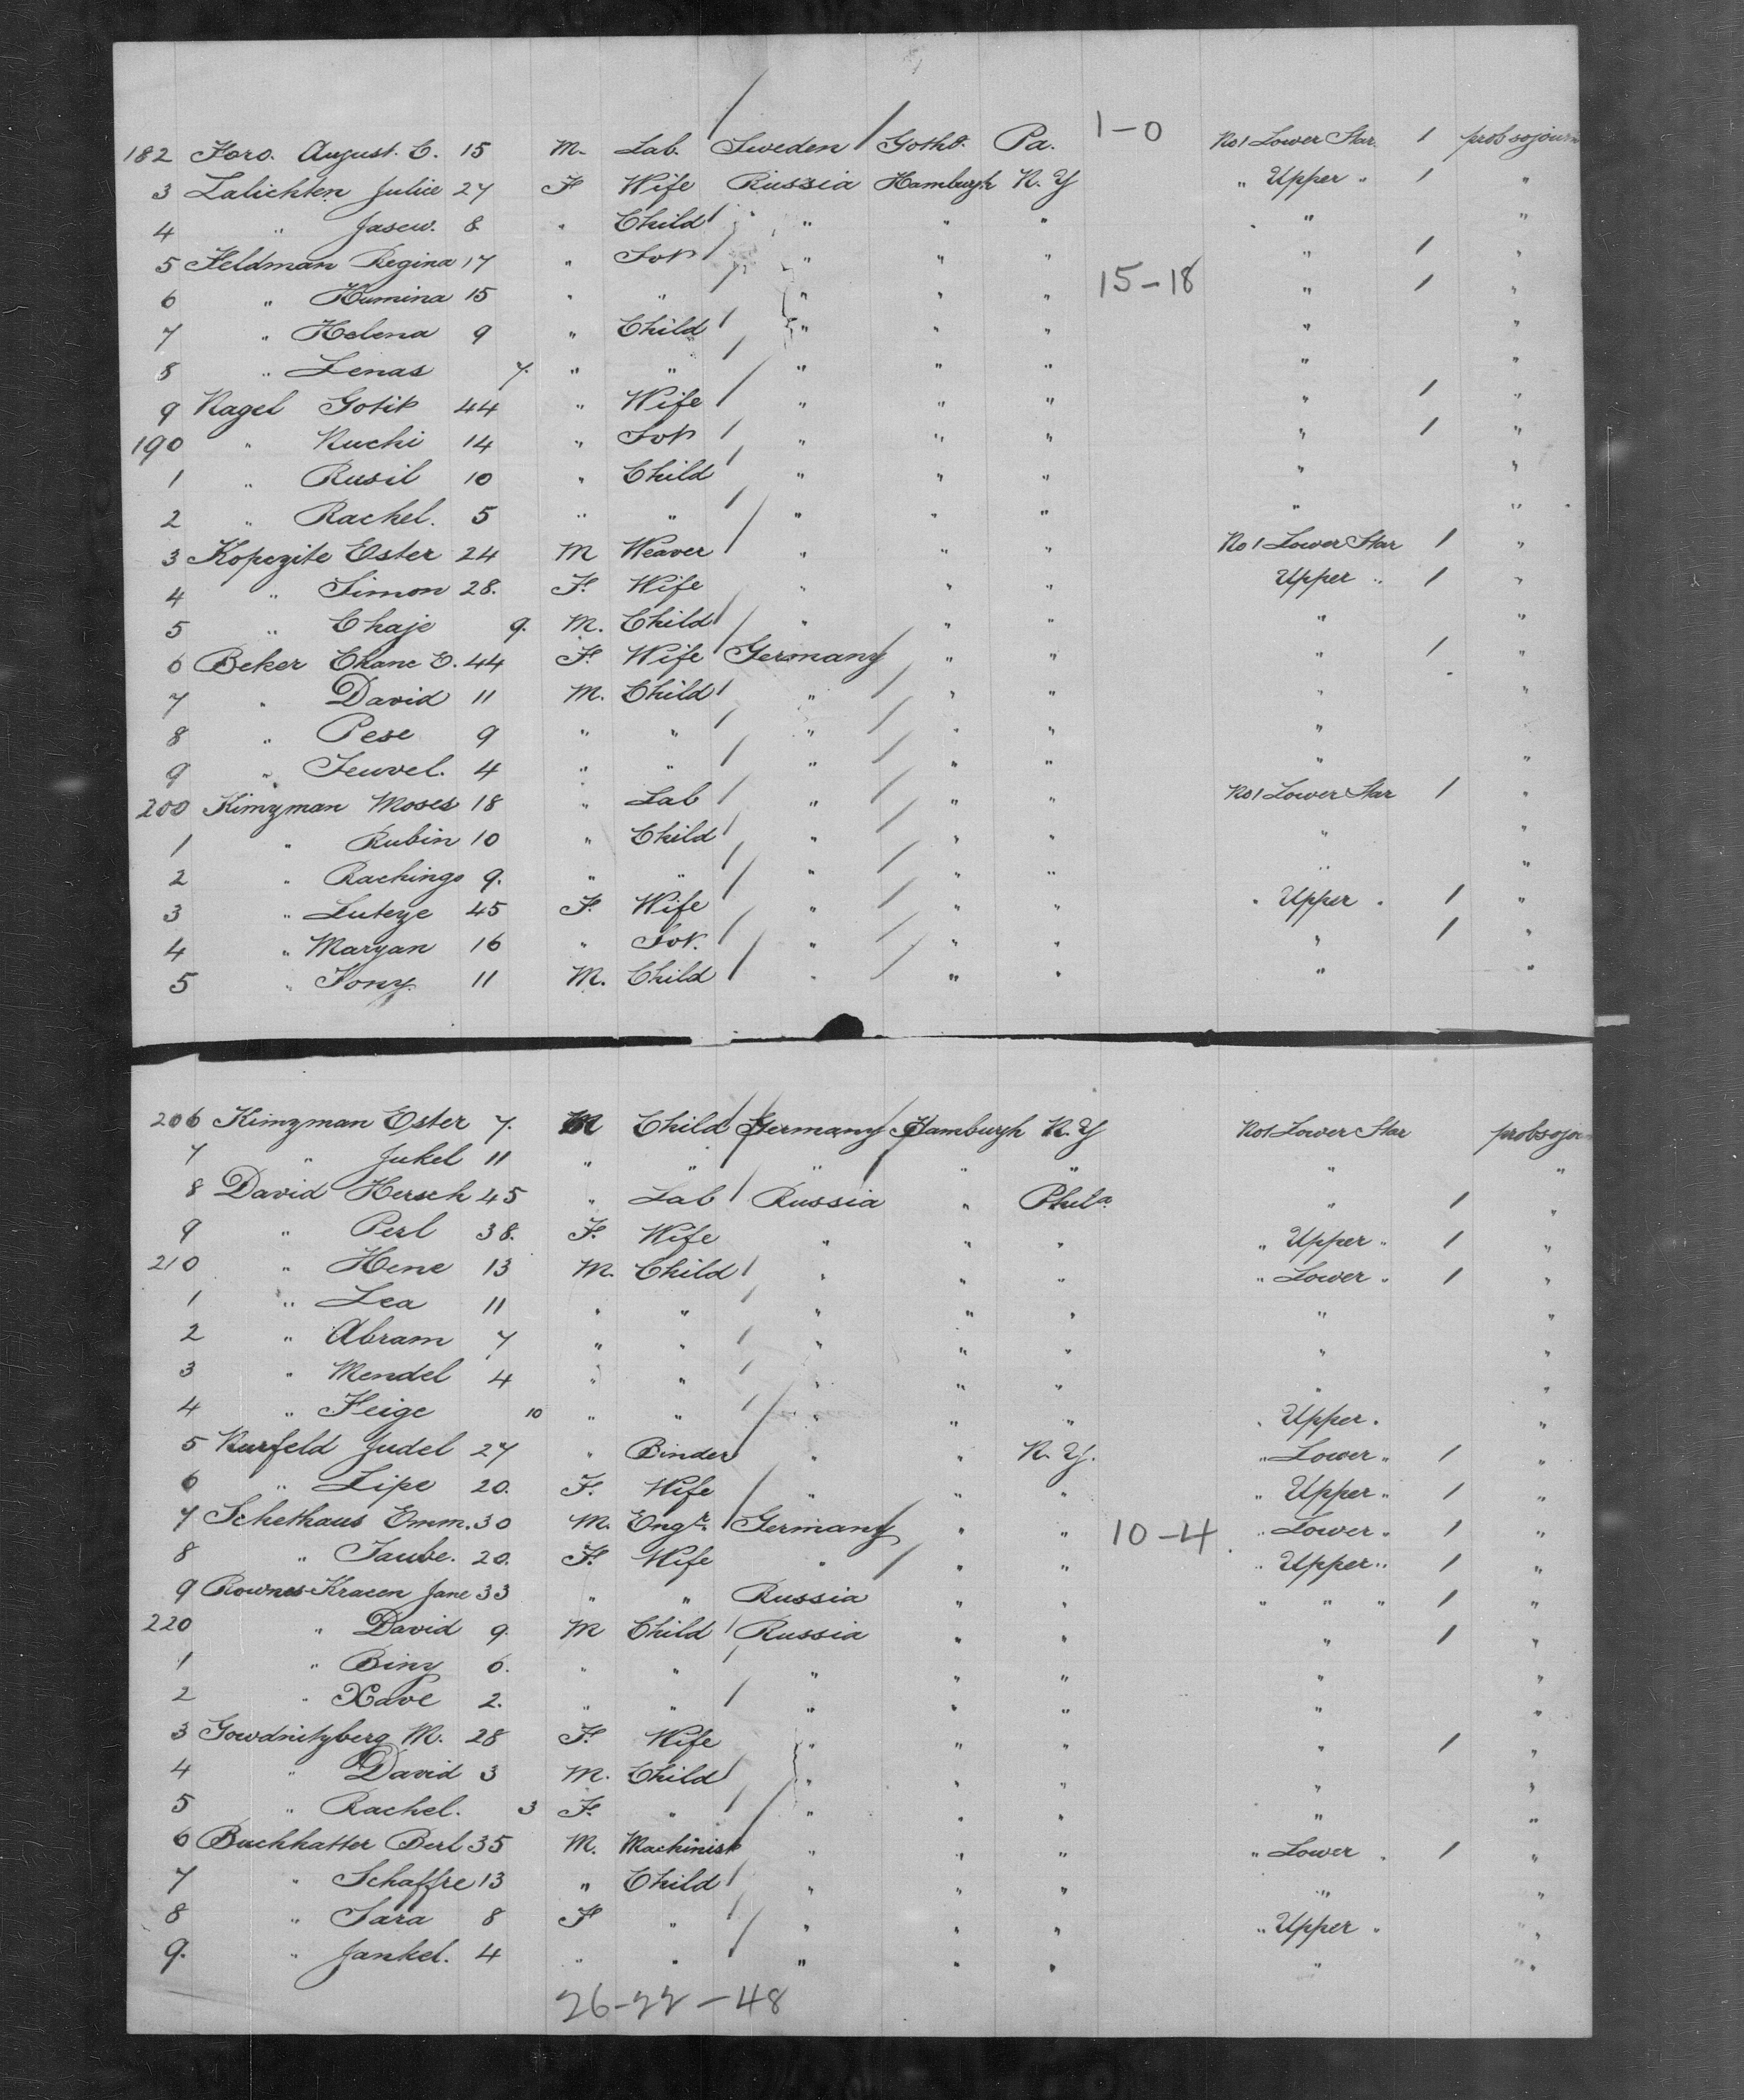 182 Foro. August. E. 15 M. Lab. Sweden Gothb. Pa. 1-0 No1 Lower Star. 1 prob sojourn
3 Lalichken Julie 27 F Wife Russia Hamburgh N.Y " Upper " 1 "
4 " Jasew. 8 " Child " " " " "
5 Feldman Regina 17 " Sptr " " " " 1 "
6 " Humina 15 " " " " " 15-18 " 1 "
7 " Helena 9 " Child " " " " "
8 " Lenas 7. " " " " " " "
9 Nagel Gotik 44 " Wife " " " " 1 "
190 " Nuchi 14 " " " " " 1 "
1 " Rusil 10 " Child " " " " "
2 " Rachel. 5 " " " " " " "
3 Kopczite Ester 24 M Weaver " " " No 1 Lower Star 1 "
4 " Simon 28. F. Wife " " " Upper " 1 "
5 " Chaje 9. M. Child " " " " "
6 Beker Chane E. 44 F. Wife Germany " " " 1 "
7 " David 11 M. Child " " " " "
8 " Pese 9 " " " " " " "
9 " Feuvel. 4 " " " " " " "
200 Kimzman Moses 18 " Lab " " " No1 Lower Star 1 "
1 " Rubin 10 " Child " " " " "
2 " Rachingo 9. " " " " " " "
3 " Luteze 45 F. Wife " " " " Upper " 1 "
4 " Maryan 16 " " " " " 1 "
5 " Tony. 11 M. Child " " " " "
206 Kimzman Ester 7. M Child Germany Hamburgh N.Y No1 Lower Star prob sojou
7 " Jukel 11 " " " " " " "
8 David Hersch 45 " Lab Russia " Phila. " 1 "
9 " Perl 38. F. Wife " " " " Upper " 1 "
210 " Hene 13 M. Child " " " " Lower " 1 "
1 " Lea 11 " " " " " " "
2 " Abram 7 " " " " " " "
3 " Mendel 4 " " " " " " "
4 " Feige 10 " " " " " " Upper " "
5 Kurfeld Judel 27 " Binder " " N.Y. " Lower " 1 "
6 " Lipe 20. F. Wife " " " " Upper " 1 "
7 Schethaus Emm. 30 M. Engr. Germany " " 10-4 " Lower " 1 "
8 " Taube. 20. F. Wife " " " " Upper " 1 "
9 Rownes-Kracen Jane 33 " " Russia " " " " " 1 "
220 " David 9. M Child Russia " " " 1 "
1 " Biny 6. " " " " " " "
2 " Xave 2. " " " " " " "
3 Gowdnitzberg M. 28 F. Wife " " " " 1 "
4 " David 3 M. Child " " " " "
5 " Rachel. 3 F. " " " " " "
6 Buchhatter Berl 35 M. Machinist " " " " Lower " 1 "
7 " Schaffre 13 " Child " " " " "
8 " Sara 8 F " " " " " Upper " "
9. " Jankel. 4 " " " " " " "
26-22-48